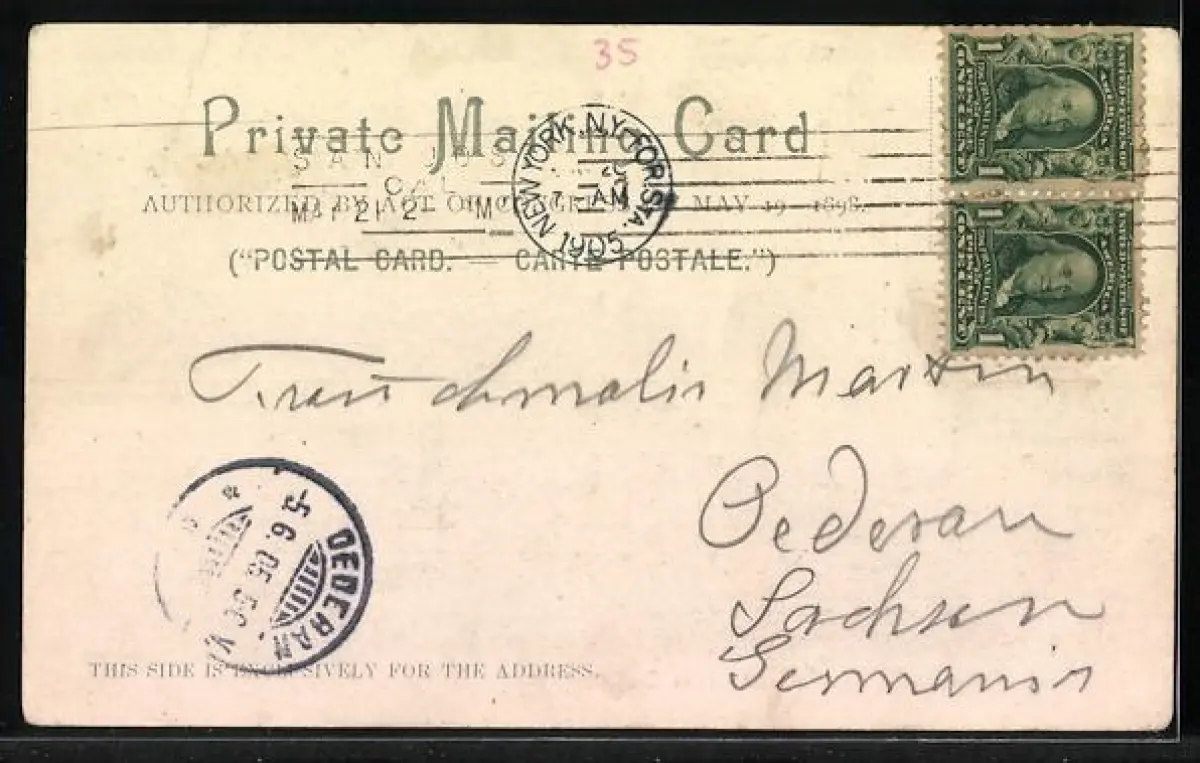 35
Private Mailing Card
SAN JOSE
CAL
AUTHORIZED BY ACT OF CONGRESS MAY 19 1898.
NEW YORK, N.Y. FOR. STA.
AM
1905
("POSTAL CARD. — CARTE POSTALE.")
1
1
Martin
Oederan
Sachsen
Germania
OEDERAN
5.6.05
THIS SIDE IS EXCLUSIVELY FOR THE ADDRESS.